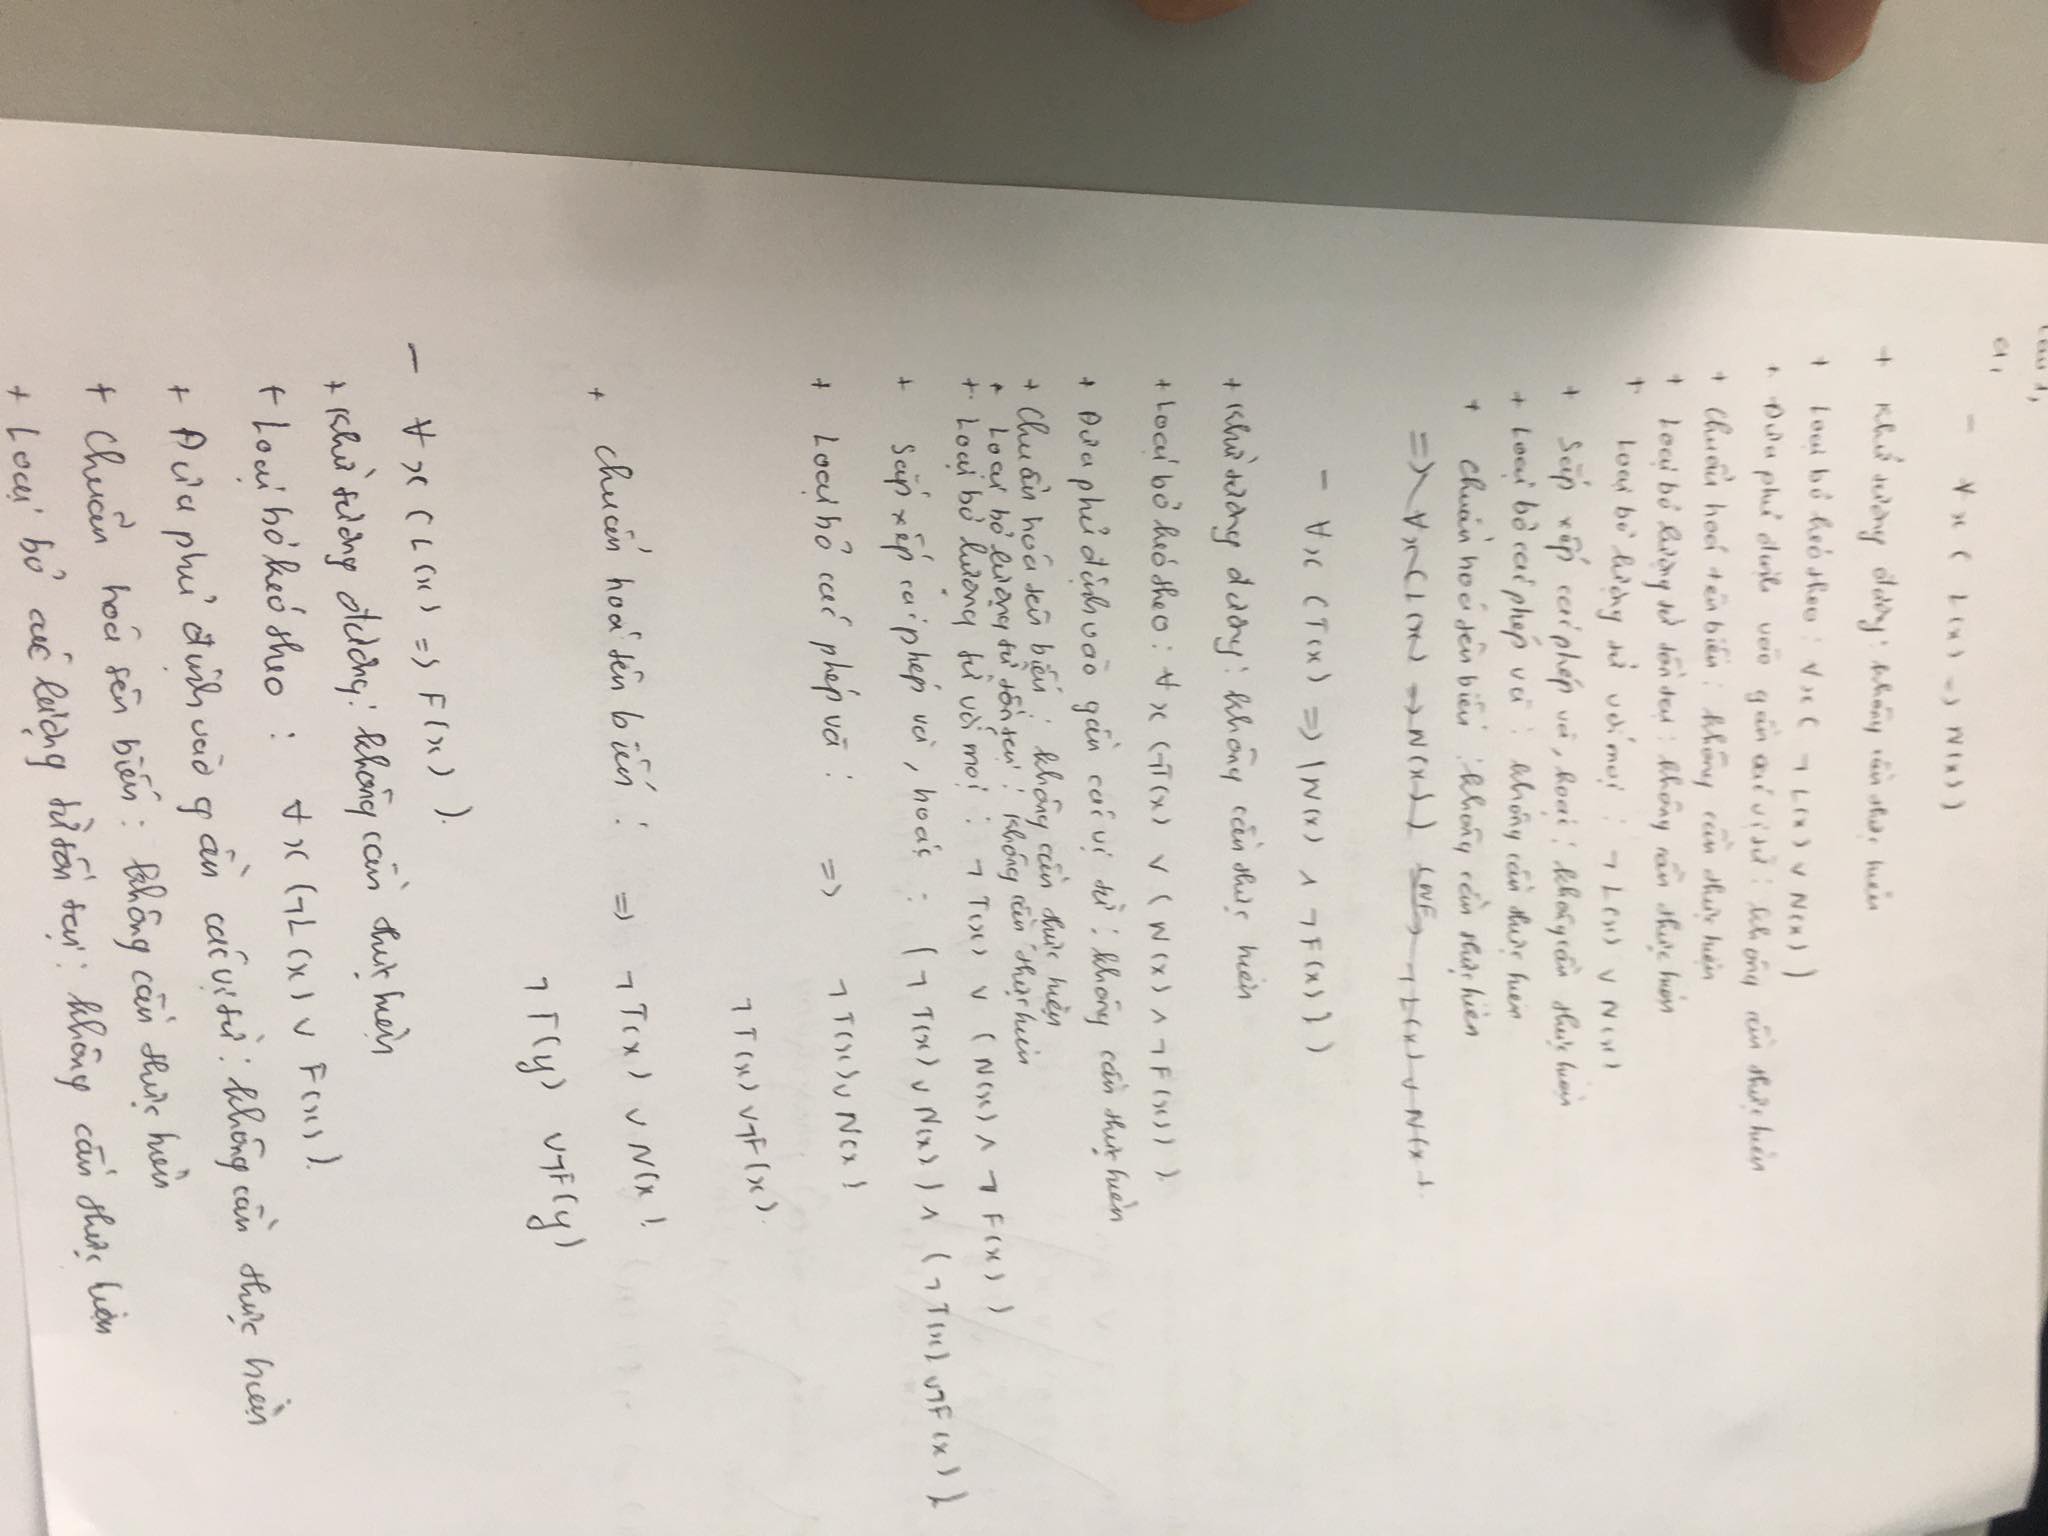 Câu 1,
a,
- ∀x ( L(x) => N(x))
+ Khử tương đương: không cần thực hiện
+ Loại bỏ kéo theo: ∀x( ¬L(x) ∨ N(x) )
+ Đưa phủ định vào gần các vị từ: không cần thực hiện
+ Chuẩn hoá tên biến: không cần thực hiện
+ Loại bỏ lượng từ tồn tại: không cần thực hiện
+ Loại bỏ lượng từ với mọi: ¬L(x) ∨ N(x)
+ Sắp xếp các phép và, hoặc: không cần thực hiện
+ Loại bỏ các phép và: không cần thực hiện
+ Chuẩn hoá tên biến: không cần thực hiện
=> ∀x(L(x) => N(x)) CNF ¬L(x) ∨ N(x)
- ∀x (T(x) => (N(x) ∧ ¬F(x)))
+ Khử tương đương: không cần thực hiện
+ Loại bỏ kéo theo: ∀x (¬T(x) ∨ (N(x) ∧ ¬F(x))).
+ Đưa phủ định vào gần các vị từ: không cần thực hiện
+ Chuẩn hoá tên biến: không cần thực hiện
+ Loại bỏ lượng từ tồn tại: không cần thực hiện
+ Loại bỏ lượng từ với mọi: ¬T(x) ∨ (N(x) ∧ ¬F(x))
+ Sắp xếp các phép và, hoặc: (¬T(x) ∨ N(x)) ∧ (¬T(x) ∨ ¬F(x)).
+ Loại bỏ các phép và: => ¬T(x) ∨ N(x)
¬T(x) ∨ ¬F(x).
+ Chuẩn hoá tên biến: => ¬T(x) ∨ N(x)
¬T(y) ∨ ¬F(y)
- ∀x (L(x) => F(x)).
+ Khử tương đương: không cần thực hiện
+ Loại bỏ kéo theo: ∀x (¬L(x) ∨ F(x)).
+ Đưa phủ định vào gần các vị từ: không cần thực hiện
+ Chuẩn hoá tên biến: không cần thực hiện
+ Loại bỏ các lượng từ tồn tại: không cần thực hiện